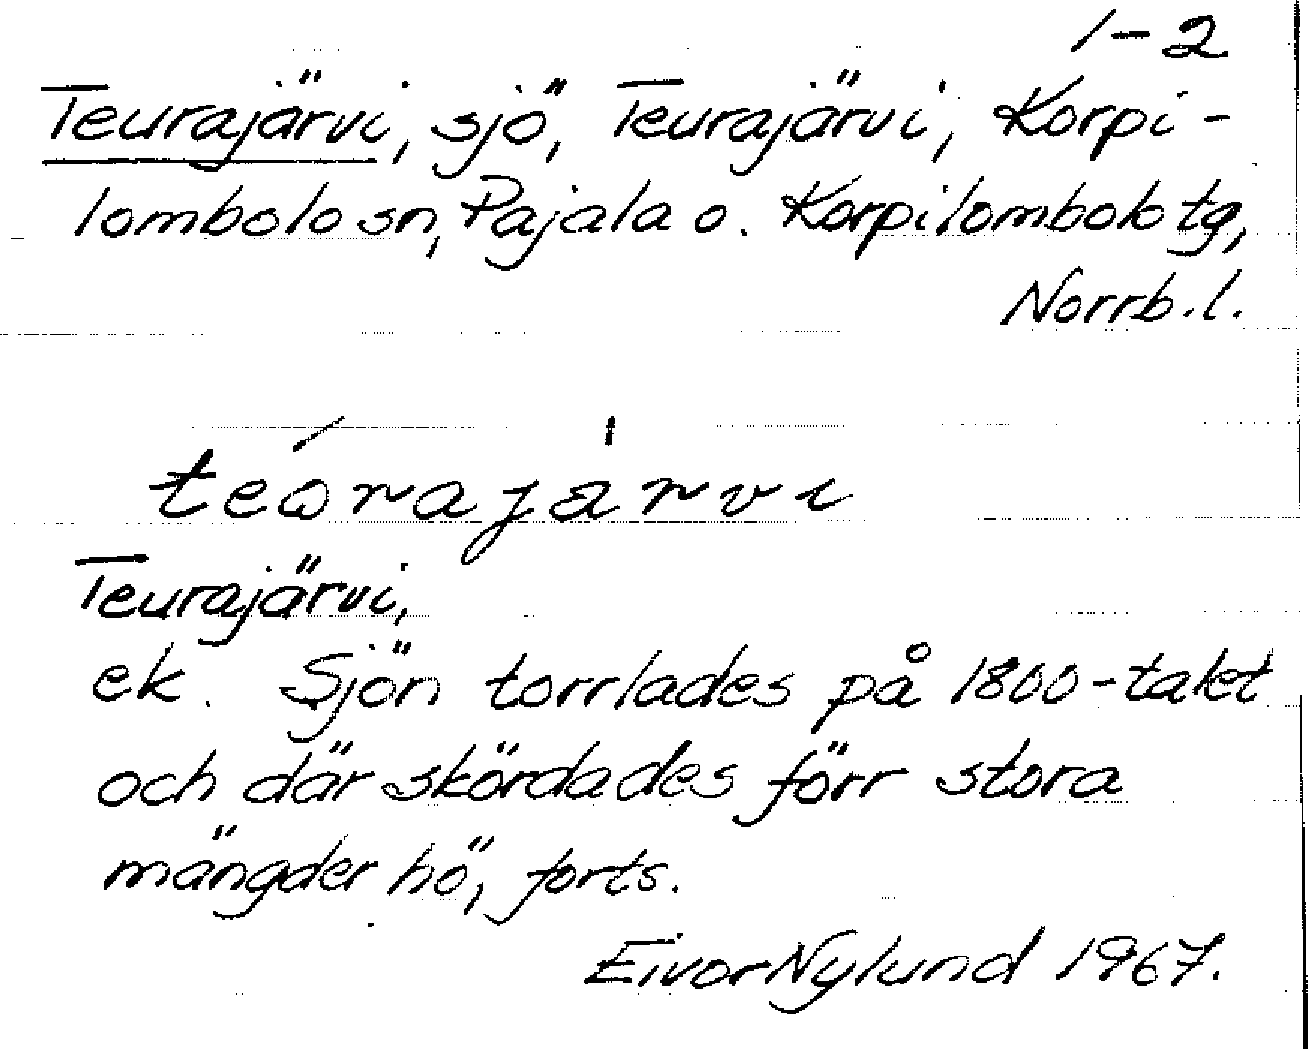 1-2
Teurajärvi, sjö, Teurajärvi, Korpi-
lombolo sn, Pajala o. Korpilombolo tg,
Norrb. l.
teorajärvi
Teurajärvi,
ek. Sjön torrlades på 1800-talet
och där skördades förr stora
mängder hö, forts.
Eivor Nylund 1967.